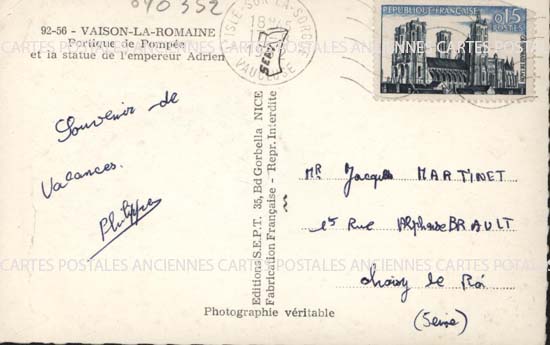 040352
92-56 - VAISON-LA-ROMAINE
Portique de Pompée
et la statue de l'empereur Adrien
ISLE-SUR-LA-SORGUE
18
VAUCLUSE
REPUBLIQUE FRANÇAISE
0,15
POSTES
Souvenir de
Vacances.
Philippe
Editions S.E.P.T. 35, Bd Gorbella NICE
Fabrication Française - Repr. Interdite
Mr Jacques MARTINET
Rue Alphonse BRAULT
Choisy le Roi
(Seine)
CARTES POSTALES ANCIENNES CARTES POSTALES ANCIENNES CARTES POSTALES ANCIENNES
Photographie véritable